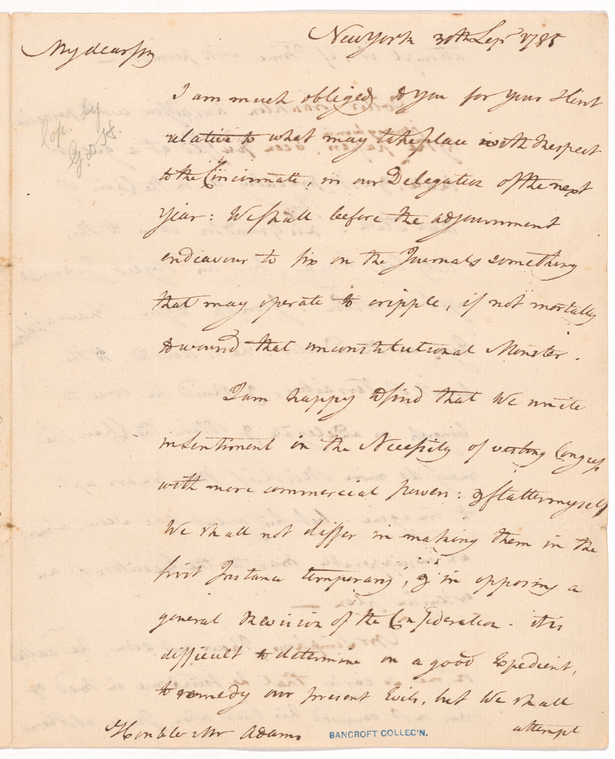 New York 30th Sepr 1785
My dear Sir
Cop. by
G. D. H.
I am much obliged to you for your Hint
relative to what may take place with respect
to the Cincinnati, in our Delegation of the next
year: We shall before the adjournment
endeavour to fix on the Journals something
that may operate to cripple, if not mortally
to wound that unconstitutional Monster.
I am happy to find that We unite
in Sentiment in the Necessity of vesting Congress
with more commercial powers: I flatter myself
We shall not differ in making them in the
first Instance temporary, & in opposing a
general Revision of the Confederation. it is
difficult to determine on a good Expedient,
to remedy our present Evils, but We shall
attempt
Honble Mr Adams
BANCROFT COLLEC'N.